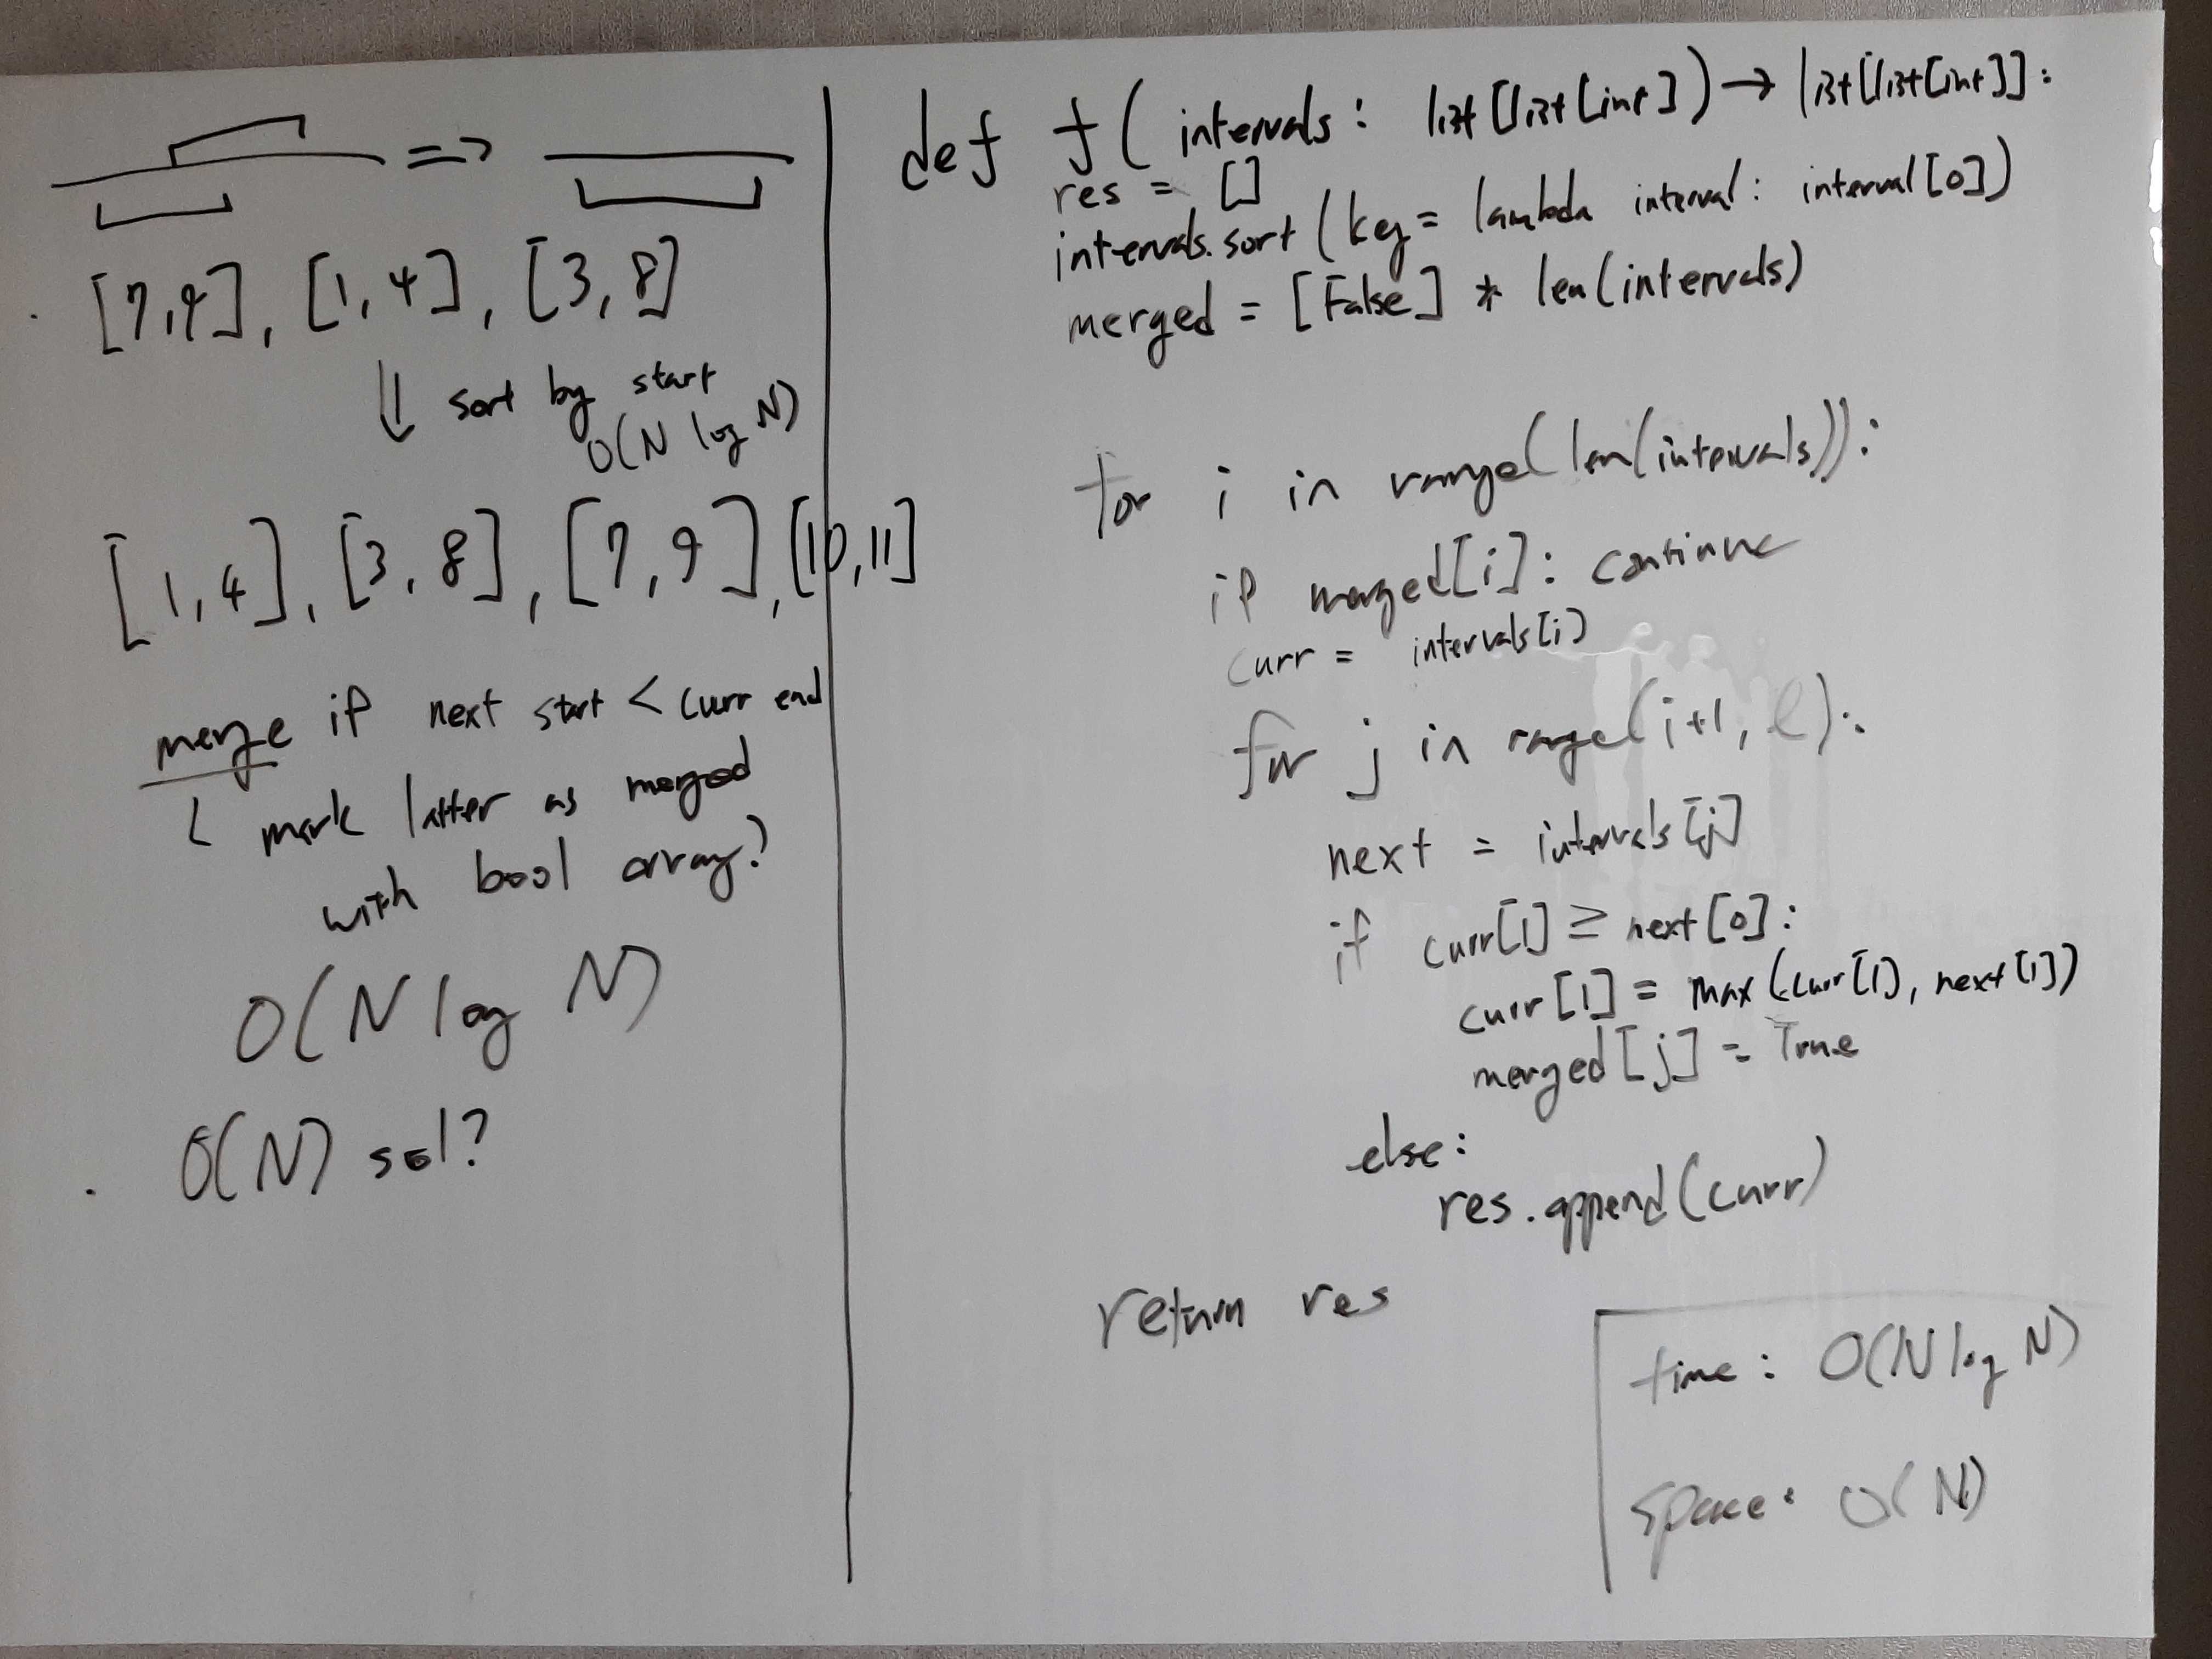 =>
[7,9], [1,4], [3,8]
sort by start
O(N log N)
[1,4], [3,8], [7,9], [10,11]
merge if next start < curr end
mark latter as merged
with bool array?
O(N log N)
O(N) sol?
def f(intervals: list[list[int]) → list[list[int]]:
res = []
intervals.sort(key= lambda interval: interval[0])
merged = [False] * len(intervals)
for i in range(len(intervals)):
if merged[i]: continue
curr = intervals[i]
for j in range(i+1, l):
next = intervals[j]
if curr[1] ≥ next[0]:
curr[1] = max(curr[1], next[1])
merged[j] = True
else:
res.append(curr)
return res
time: O(N log N)
space: O(N)